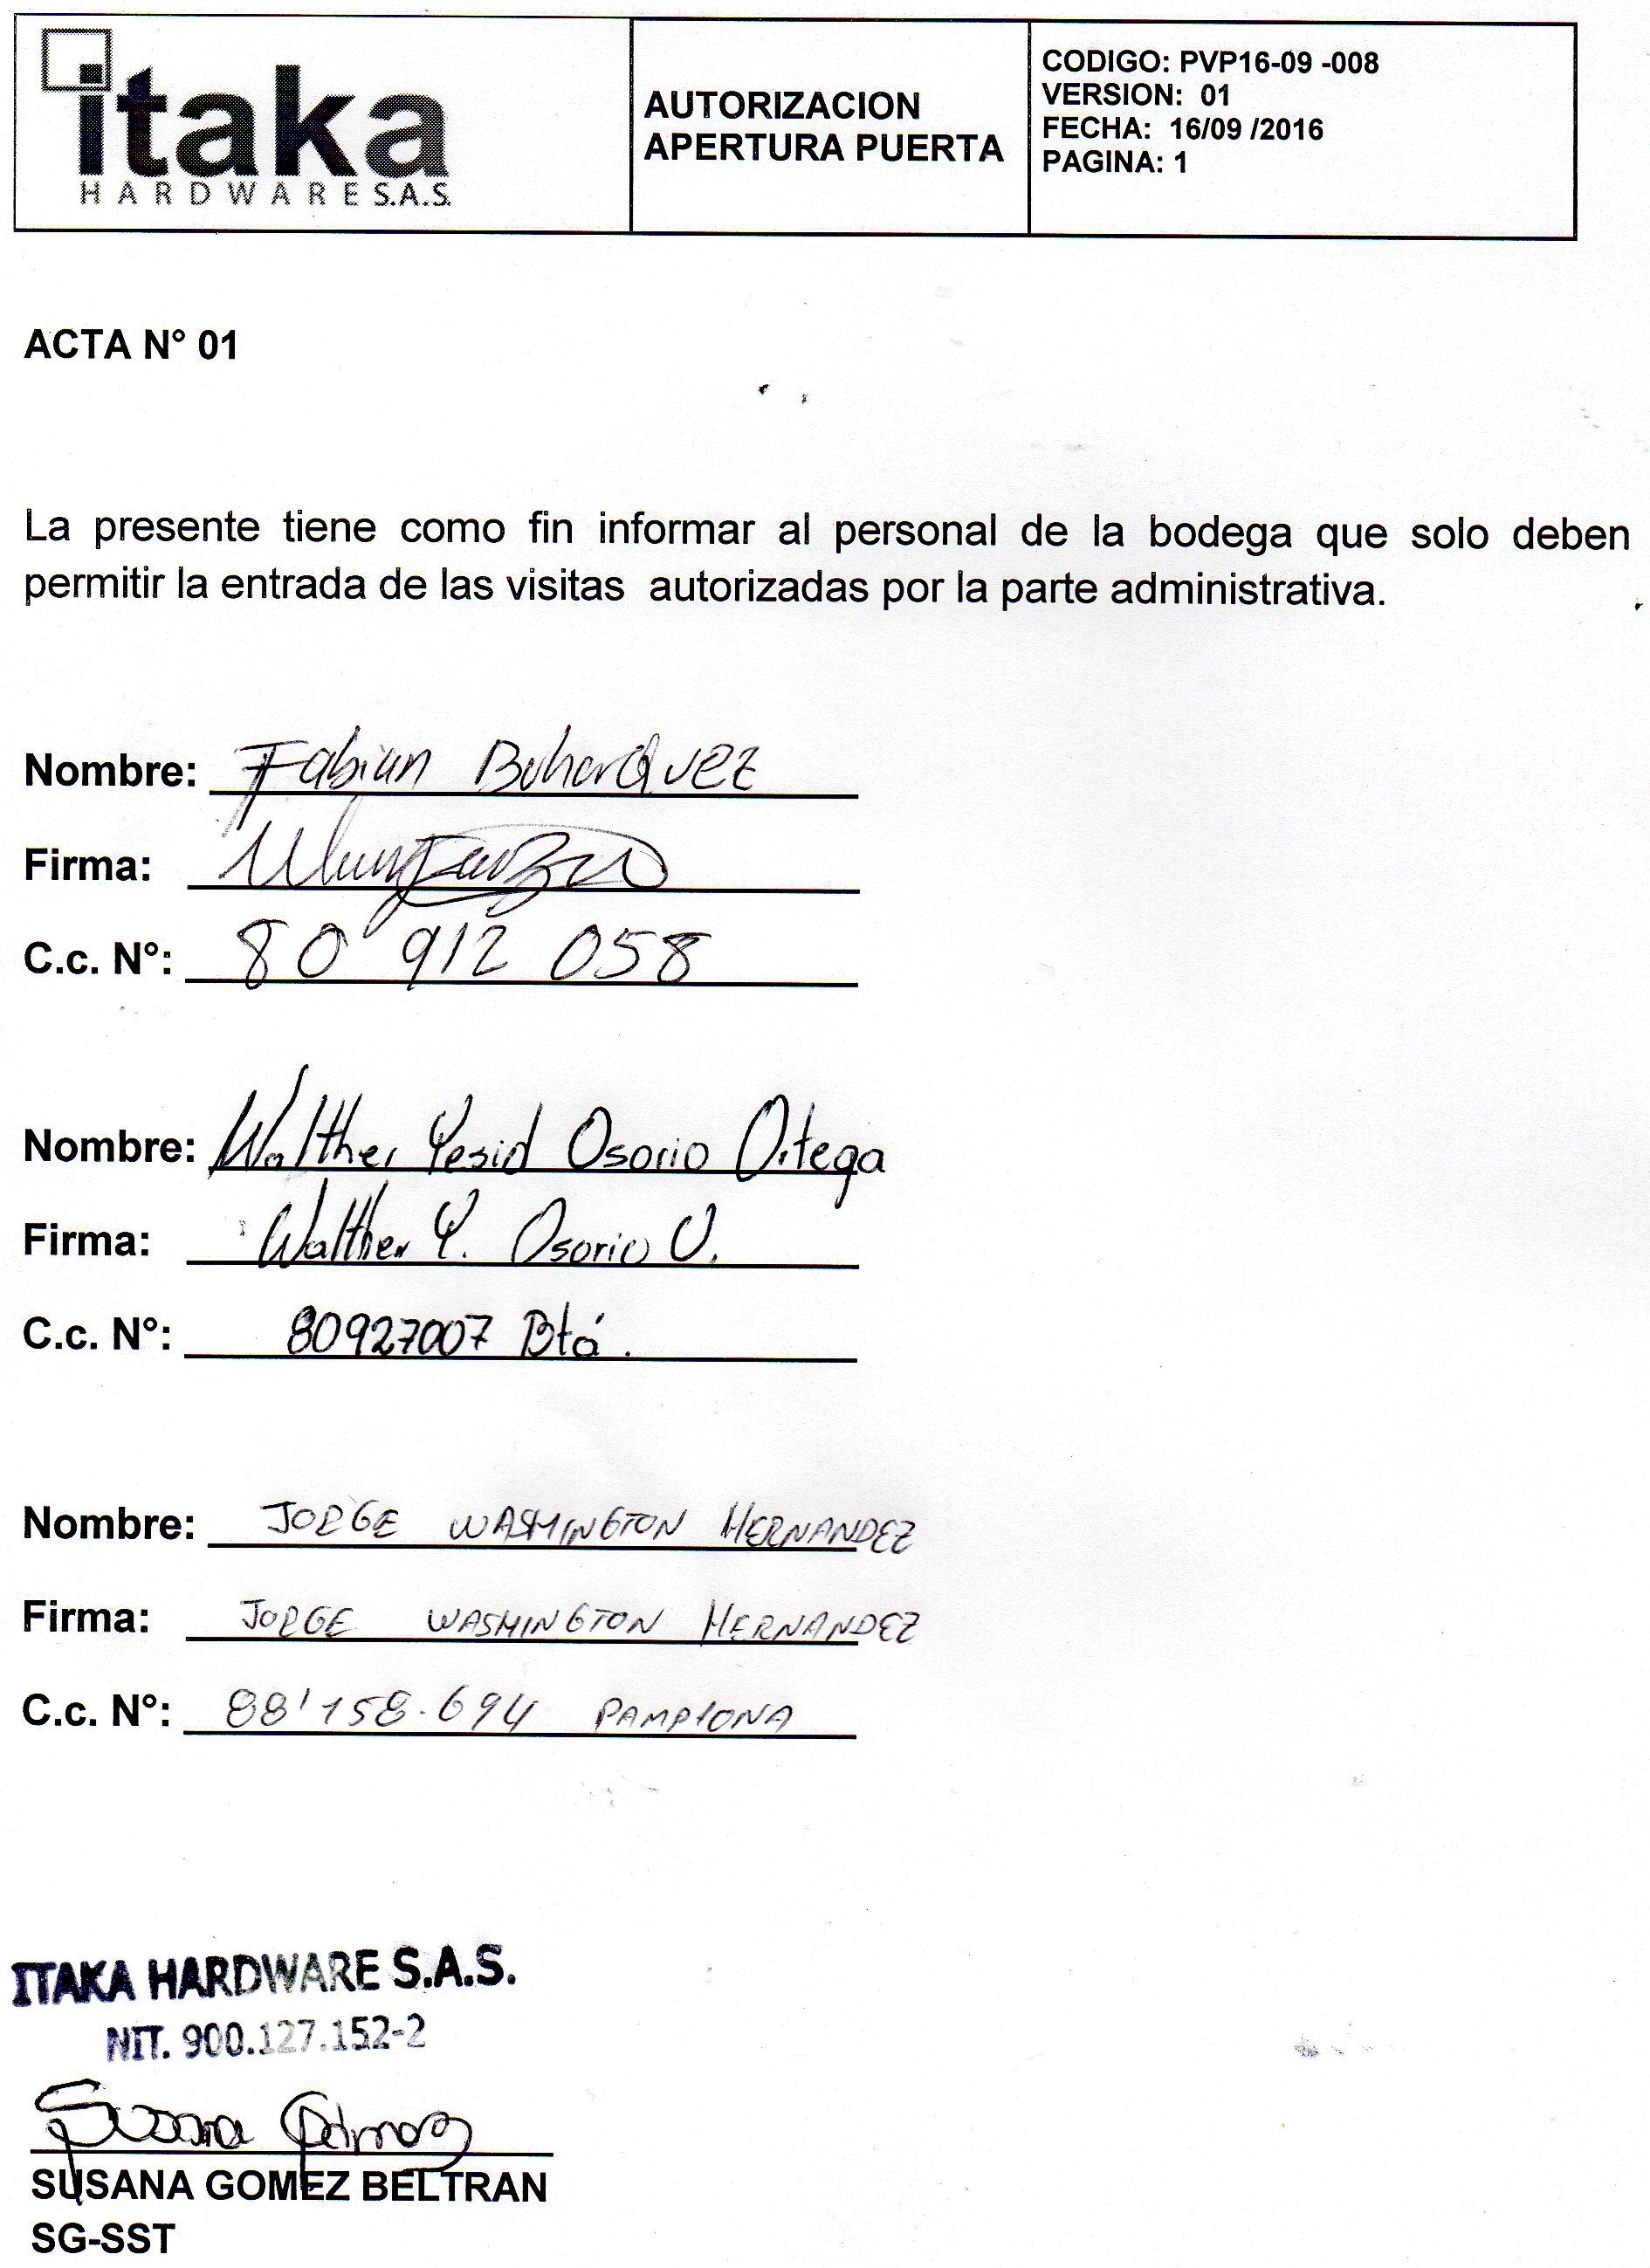 itaka
HARDWARE S.A.S.
AUTORIZACION
APERTURA PUERTA
CODIGO: PVP16-09 -008
VERSION: 01
FECHA: 16/09 /2016
PAGINA: 1
ACTA N° 01
La presente tiene como fin informar al personal de la bodega que solo deben
permitir la entrada de las visitas autorizadas por la parte administrativa.
Nombre: Fabian BohorQuez
Firma:
C.c. N°: 80 912 058
Nombre: Walther Yesid Osorio Ortega
Firma: Walther Y. Osorio O.
C.c. N°: 80927007 Btá.
Nombre: JORGE WASHINGTON HERNANDEZ
Firma: JORGE WASHINGTON HERNANDEZ
C.c. N°: 88'158.694 PAMPLONA
ITAKA HARDWARE S.A.S.
NIT. 900.127.152-2
Susana Gómez
SUSANA GOMEZ BELTRAN
SG-SST